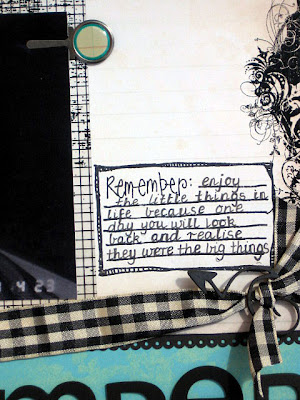 Remember: enjoy
the little things in
life because one
day you will look
back and realise
they were the big things
4 23